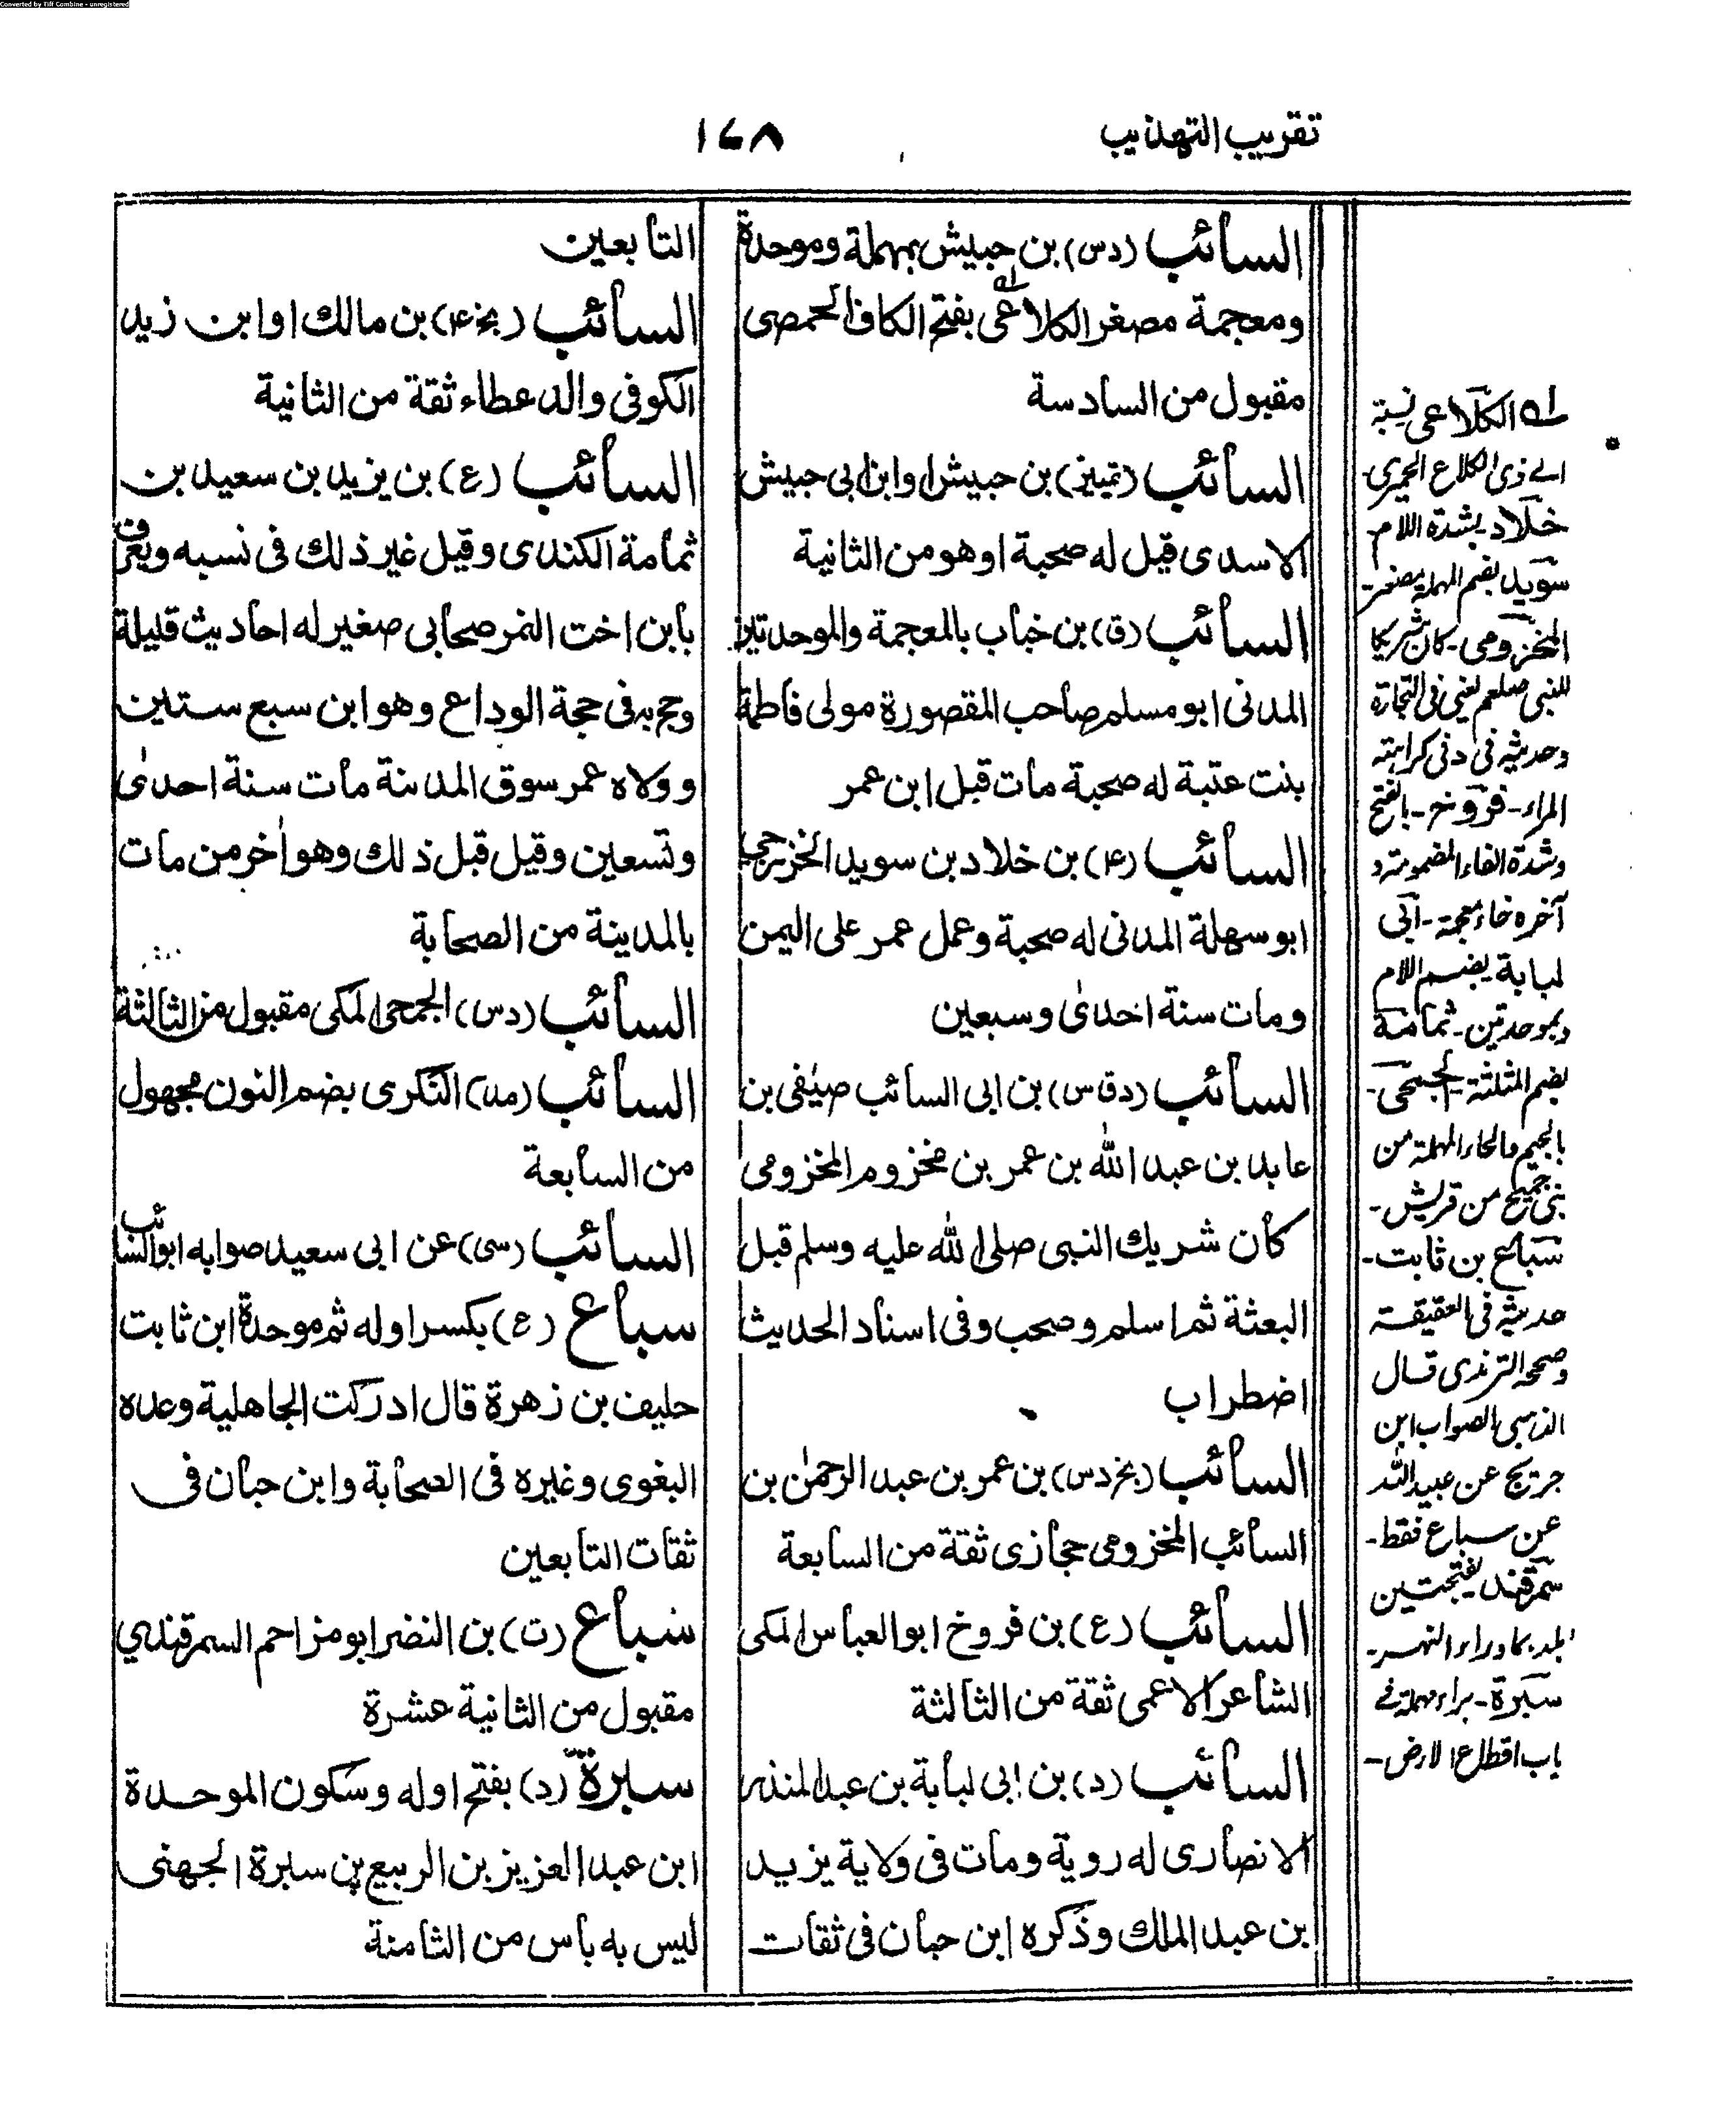 Converted by Tiff Combine - unregistered
تقريب التهذيب
١٦٨
السائب (دس) بن حبيش بمهملة وموحدة
ومعجمة مصغر الكلاعى بفتح الكاف الحمصى
مقبول من السادسة
السائب (تمييز) بن حبيش او ابن ابى حبيش
الاسدى قيل له صحبة او هو من الثانية
السائب (ق) بن خباب بالمعجمة والموحدتين
المدنى ابو مسلم صاحب المقصورة مولى فاطمة
بنت عتبة له صحبة مات قبل ابن عمر
السائب (۴) بن خلاد بن سويد الخزرجى
ابو سهلة المدنى له صحبة وعمل عمر على اليمن
ومات سنة احدى وسبعين
السائب (دق س) بن ابى السائب صيفى بن
عابد بن عبد الله بن عمر بن مخزوم المخزومى
كان شريك النبى صلى الله عليه وسلم قبل
البعثة ثم اسلم وصحب وفى اسناد الحديث
اضطراب
السائب (بخ دس) بن عمر بن عبد الرحمن بن
السائب المخزومى حجازى ثقة من السابعة
السائب (ع) بن فروخ ابو العباس المكى
الشاعر الاعمى ثقة من الثالثة
السائب (د) بن ابى لبابة بن عبد المنذر
الانصارى له روية ومات فى ولاية يزيد
بن عبد الملك وذكره ابن حبان فى ثقات
التابعين
السائب (بخ ۴) بن مالك او ابن زيد
الكوفى والد عطاء ثقة من الثانية
السائب (ع) بن يزيد بن سعيد بن
ثمامة الكندى وقيل غير ذلك فى نسبه ويعرف
بابن اخت النمر صحابى صغير له احاديث قليلة
وحج به فى حجة الوداع وهو ابن سبع سنين
وولاه عمر سوق المدينة مات سنة احدى
وتسعين وقيل قبل ذلك وهو آخر من مات
بالمدينة من الصحابة
السائب (دس) الجمحى المكى مقبول من الثالثة
السائب (مد) النكرى بضم النون مجهول
من السابعة
السائب (سى) عن ابى سعيد صوابه ابو السائب
سباع (ع) بكسر اوله ثم موحدة ابن ثابت
حليف بن زهرة قال ادركت الجاهلية وعده
البغوى وغيره فى الصحابة وابن حبان فى
ثقات التابعين
سباع (ت) بن النضر ابو مزاحم السمرقندي
مقبول من الثانية عشرة
سبرة (د) بفتح اوله وسكون الموحدة
ابن عبد العزيز بن الربيع بن سبرة الجهنى
ليس به بأس من الثامنة
له الكلاعى نسبة
الے ذى الكلاع الحميرى-
خلاد بشدة اللام
سويد بضم المهملة مصغر-
المخزومى- كان شريكا
للنبى صلعم يعنى فى التجارة
وحديثه فى د فى كراهته
المراء- فروخ- بالفتح
وشدة الفاء المضمومة و
آخره خاء معجمة- ابى
لبابة بضم اللام
وبموحدتين- ثمامة
بضم المثلثة- الجمحى-
بالجيم والحاء المهملة من
بنى جمح من قريش-
سباع بن ثابت-
حديثه فى العقيقة
وصححه الترمذى قال
الذهبى الصواب ابن
جريج عن عبيد الله
عن سباع فقط-
سمرقند بفتحتين
بلد بما وراء النهر-
سبرة- براء مهملة فے
باب اقطاع الارض-